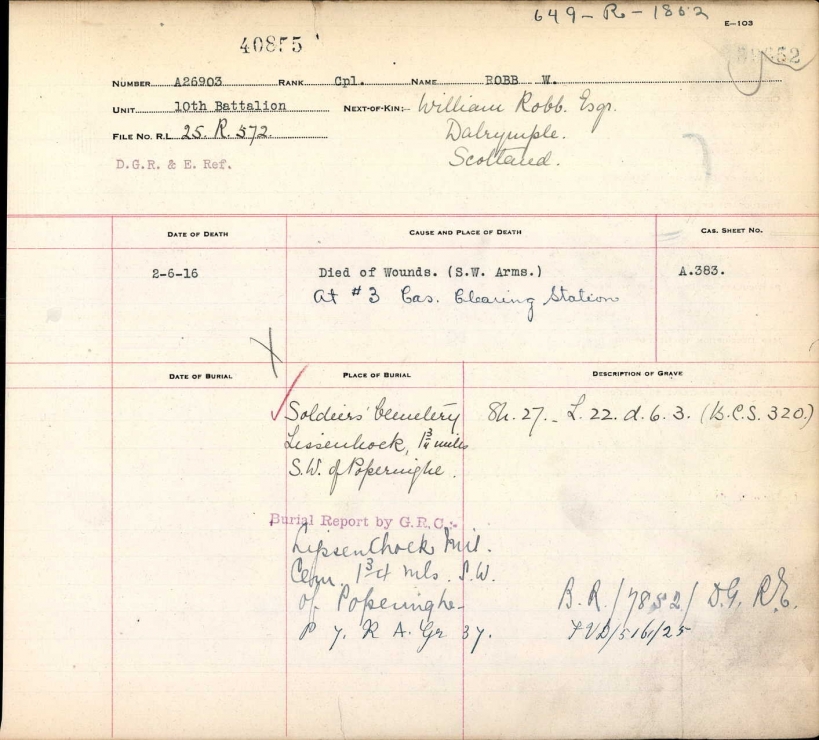 649-R-1852
E-103
40855
NUMBER A26903 RANK Cpl. NAME ROBB W.
UNIT 10th Battalion NEXT-OF-KIN:- William Robb. Esqr.
Dalrymple.
FILE NO. R.L. 25. R. 572.
Scotland.
D.G.R. & E. Ref.
DATE OF DEATH CAUSE AND PLACE OF DEATH CAS. SHEET NO.
2-6-16 Died of Wounds. (S.W. Arms.) A.383.
At #3 Cas. Clearing Station
DATE OF BURIAL PLACE OF BURIAL DESCRIPTION OF GRAVE
Soldiers' Cemetery Sh. 27. - L. 22. d. 6. 3. (B.C.S. 320.)
Lissenhock, 1 3/4 miles
S.W. of Poperinghe.
Burial Report by G.R.C.:-
Lijssenthock Mil.
Cem. 1 3/4 mls. S.W.
of Poperinghe- B.R./7852/ D.G. R.E.
P 7. R A. Gr 37.